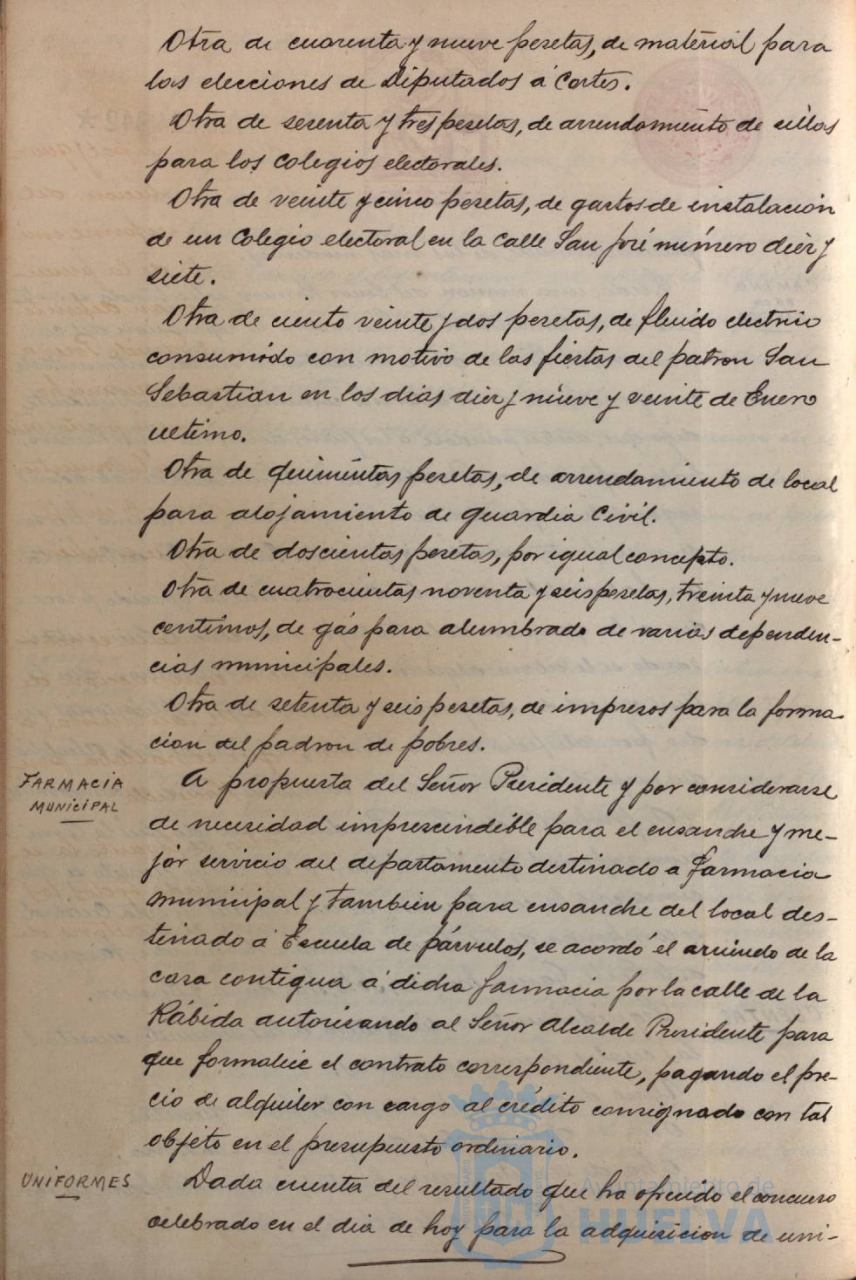 Otra de cuarenta y nueve pesetas, de material para
las elecciones de Diputados á Cortes.
Otra de sesenta y tres pesetas, de arrendamiento de sillas
para los colegios electorales.
Otra de veinte y cinco pesetas, de gastos de instalación
de un Colegio electoral en la calle San José número diez y
siete.
Otra de ciento veinte y dos pesetas, de fluido electrico
consumido con motivo de las fiestas del patron San
Sebastian en los dias diez y nueve y veinte de Enero
ultimo.
Otra de quinientas pesetas, de arrendamiento de local
para alojamiento de Guardia Civil.
Otra de doscientas pesetas, por igual concepto.
Otra de cuatrocientas noventa y seis pesetas, treinta y nueve
centimos, de gás para alumbrado de varias dependen-
cias municipales.
Otra de setenta y seis pesetas, de impresos para la forma
cion del padron de pobres.
FARMACIA
MUNICIPAL
A propuesta del Señor Presidente y por considerarse
de necesidad imprescindible para el ensanche y me-
jor servicio del departamento destinado a farmacia
municipal y tambien para ensanche del local des-
tinado á Escuela de párvulos, se acordó el arriendo de la
casa contigua á dicha farmacia por la calle de la
Rábida autorisando al Señor Alcalde Presidente para
que formalice el contrato correspondiente, pagando el pre-
cio de alquiler con cargo al crédito consignado con tal
objeto en el presupuesto ordinario.
UNIFORMES
Dada cuenta del resultado que ha ofrecido el concurso
celebrado en el dia de hoy para la adquisicion de uni-
Ayuntamiento de
HUELVA